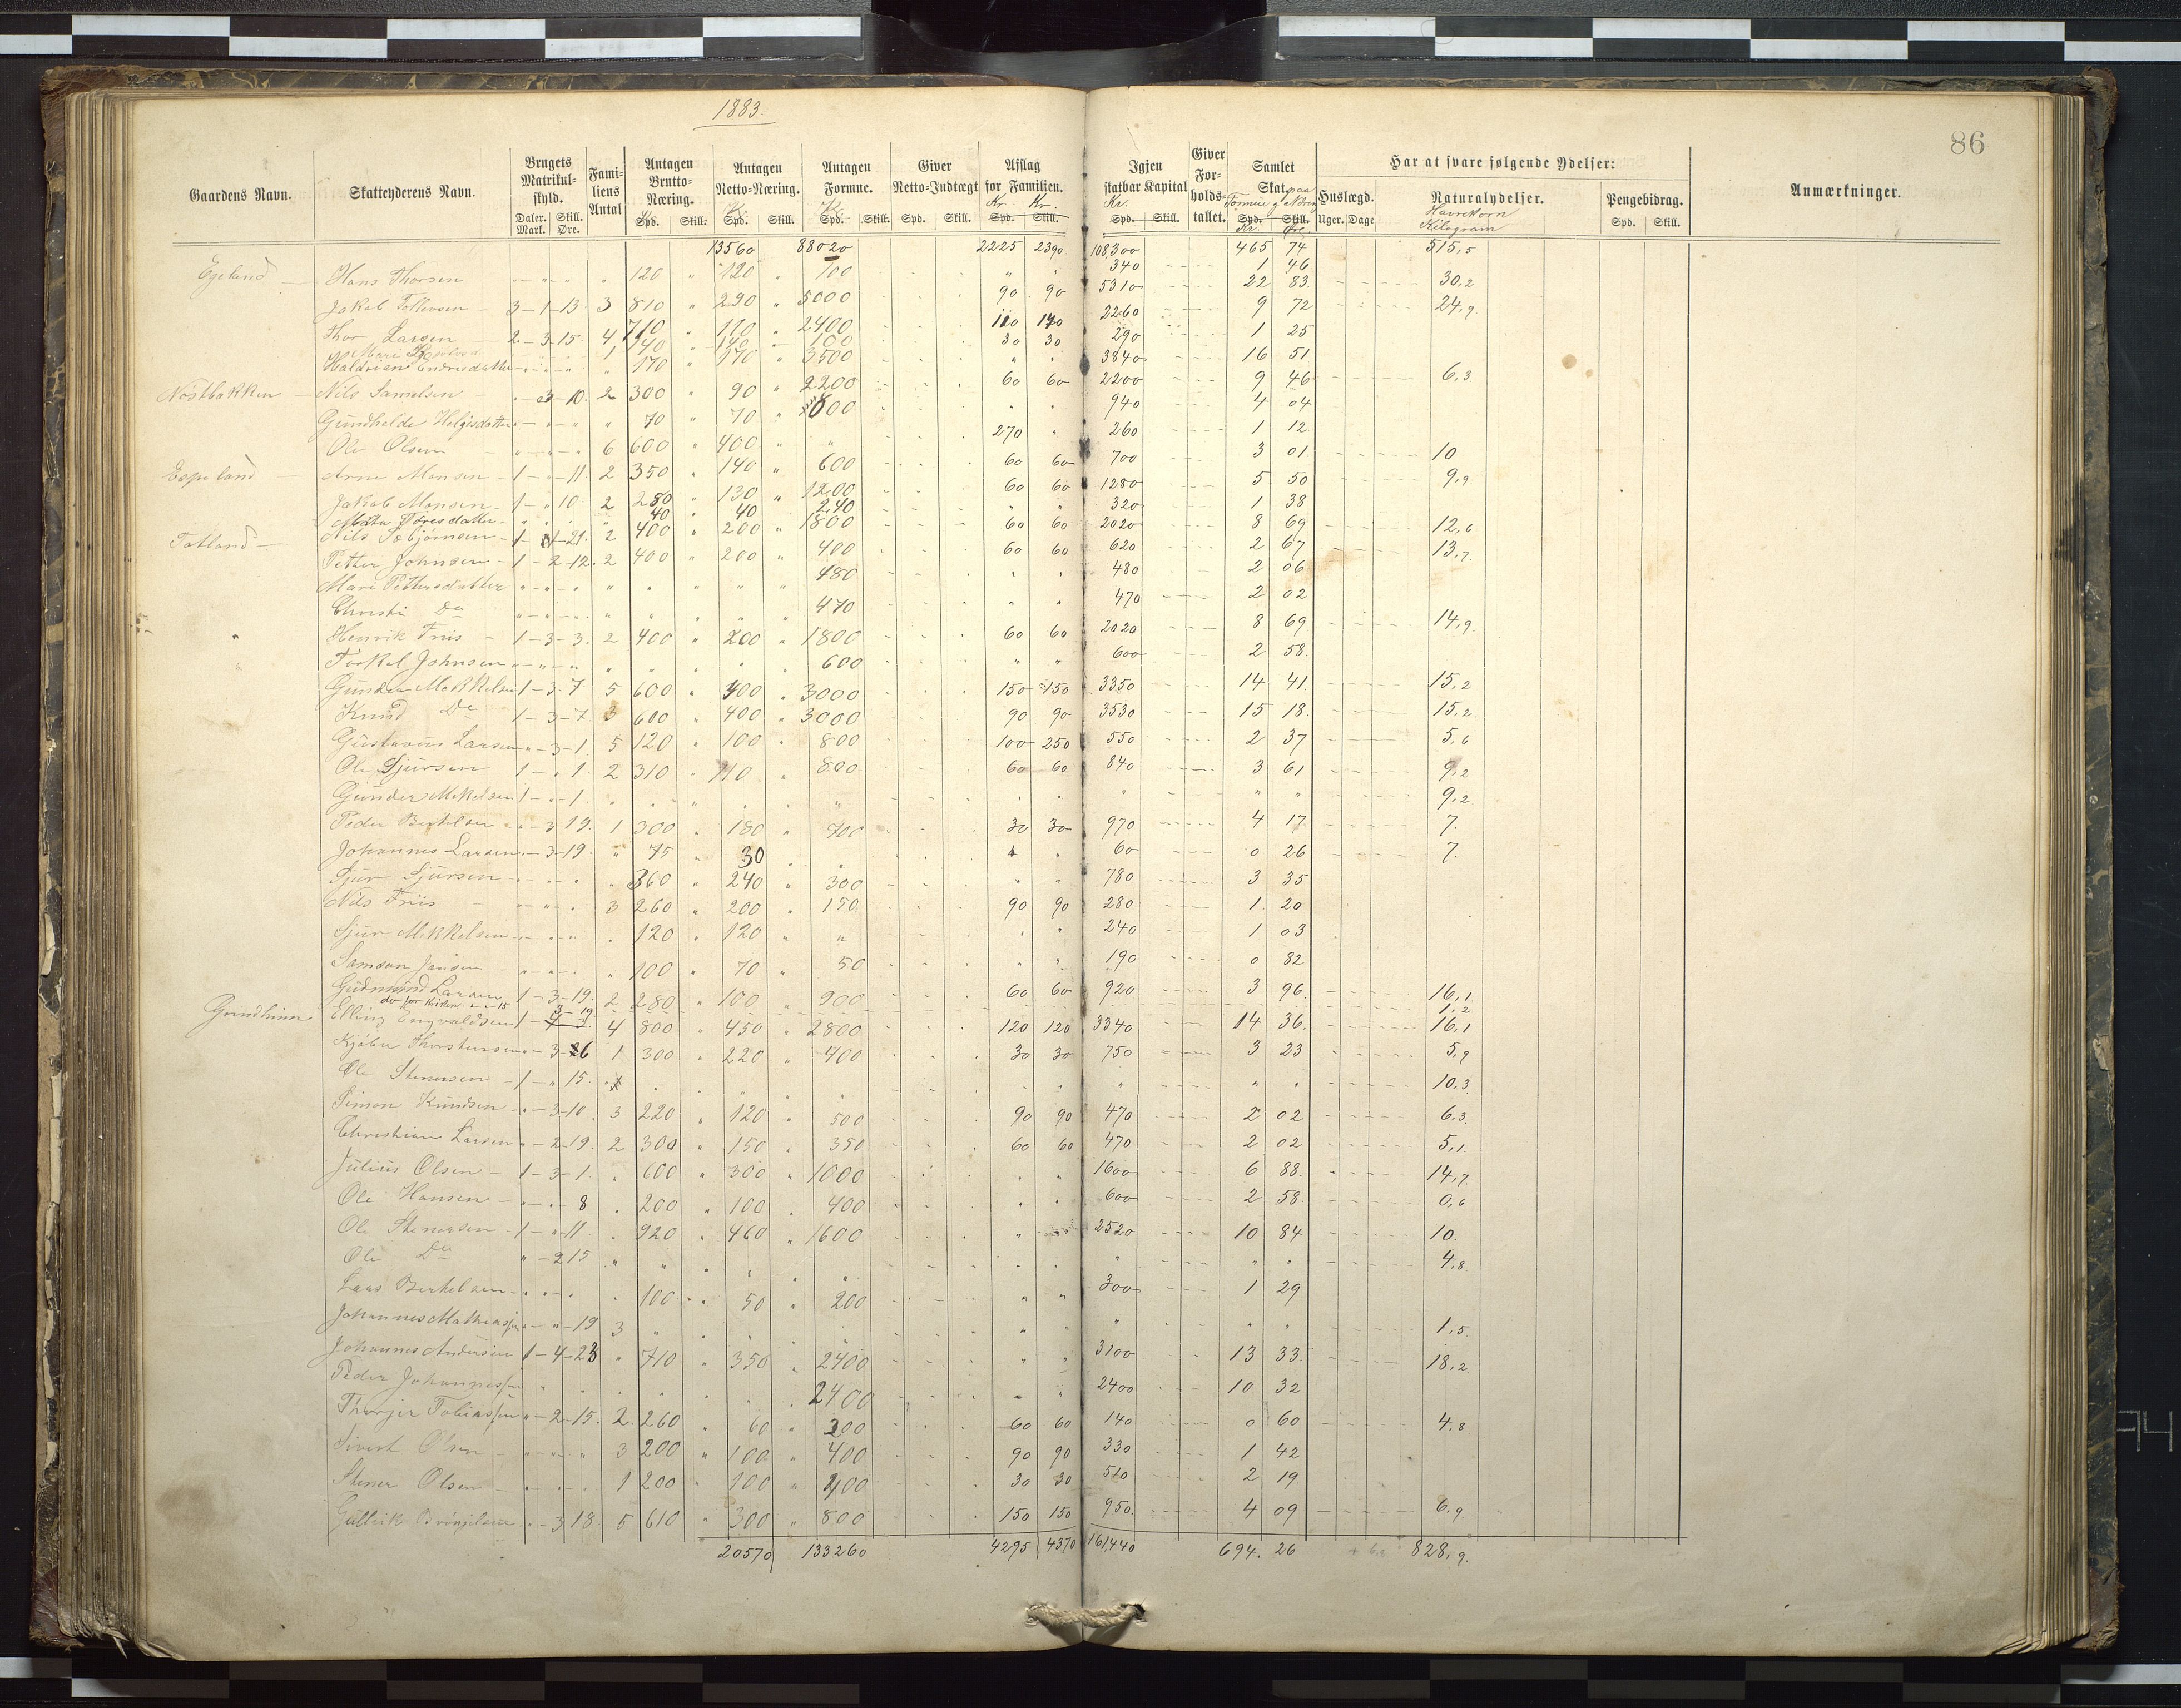 1883.
86
Gaardens Navn. Skatteyderens Navn. Brugets Matrikul-skyld. Daler. Mark. Skill. Øre. Familiens Antal Antagen Brutto-Næring. Spd. Skill. Antagen Netto-Næring. Spd. Skill. Antagen Formue. Spd. Skill. Giver Netto-Indtægt Spd. Skill. Afslag for Familien. Kr. Kr. Spd. Skill. Igjen skatbar Kapital Kr. Spd. Skill. Giver Forholds-tallet. Samlet Skat. paa Formue og Næring Spd. Skill. Kr. Øre Har at svare følgende Ydelser: Huslægd. Uger. Dage Naturalydelser. Havrekorn Kilogram Pengebidrag. Spd. Skill. Anmærkninger.
13560 88020 2225 2390 108,300 465 74 515,5
Hans Thorsen 120 120 100 340 1 46
Jakob Tollevsen 3-1-13 3 810 290 5000 90 90 5310 22 83 30,2
Thor Larsen 2-3-15 4 710 110 2400 110 140 2260 9 72 24,9
Mari 1 140 140 100 30 30 290 1 25
Endresdatter 170 170 3500 3840 16 51
Nöstbakken Nils Samelsen 3-10 2 300 90 2200 60 60 2200 9 46 6,3
Gundhelde Helgesdatter 70 70 800 940 4 04
Ole Olsen 6 600 400 270 260 1 12
Espeland Arne Monsen 1-"-11 2 350 140 600 60 60 700 3 01 10
Jakob Monsen 1-"-10 2 280 130 1200 60 60 1280 5 50 9,9
40 40 240 320 1 38
Totland Nils 1-1-21 2 400 200 1800 60 60 2020 8 69 12,6
Petter Johnsen 1-2-12 2 400 200 400 60 60 620 2 67 13,7
Mari Pettersdatter 480 480 2 06
Christi Do 470 470 2 02
Henrik Friis 1-3-3 2 400 200 1800 60 60 2020 8 69 14,9
Torkel Johnsen 600 600 2 58
Gunder Mekkelsen 1-3-7 5 600 400 3000 150 150 3350 14 41 15,2
Knud Do 1-3-7 3 600 400 3000 90 90 3530 15 18 15,2
Gustavus Larsen "-3-1 5 120 100 800 100 250 550 2 37 5,6
Ole Sjursen 1-"-1 2 310 110 800 60 60 840 3 61 9,2
Gunder Mekelsen 1-"-1 9,2
Peder Bertelsen "-3-19 1 300 180 700 30 30 970 4 17 7
Johannes Larsen "-3-19 75 30 60 0 26 7
Sjur Sjursen 360 240 300 780 3 35
Nils Friis 3 260 200 150 90 90 280 1 20
Sjur Mekkelsen 120 120 240 1 03
Samson Jansen 100 70 50 190 0 82
Gudmund Larsen 1-3-19 2 280 100 900 60 60 920 3 96 16,1
15 1,2
Elling Engvaldsen 1-3-19 4 800 450 2800 120 120 3340 14 36 16,1
Thorstensen "-3-6 1 300 220 400 30 30 750 3 23 5,9
Ole Stenersen 1-"-15 10,3
Simon Knudsen "-3-10 3 220 120 500 90 90 470 2 02 6,3
Christian Larsen "-2-19 2 300 150 350 60 60 470 2 02 5,1
Julius Olsen 1-3-1 600 300 1000 1600 6 88 14,7
Ole Hansen "-"-8 200 100 400 600 2 58 0,6
Ole Stenersen 1-"-11 920 460 1600 2520 10 84 10
Ole Do "-2-15 4,8
Lars Bertelsen 100 50 200 300 1 29
Johannes Mathiassen "-"-19 3 1,5
Johannes Andersen 1-4-23 710 350 2400 3100 13 33 18,2
Peder Johannessen 2400 2400 10 32
Tobiassen "-2-15 2 260 60 200 60 60 140 0 60 4,8
Sivert Olsen 3 200 100 400 90 90 330 1 42
Stener Olsen 1 200 100 400 30 30 510 2 19
Gullik Brönjelsen "-3-18 5 610 300 800 150 150 950 4 09 6,9
20570 133260 4295 4370 161,440 694. 26 828,9